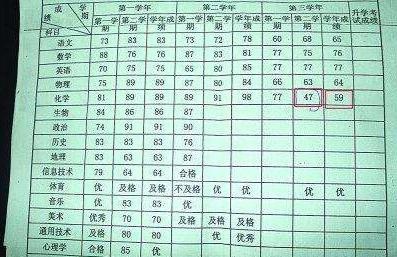 成绩 学期 科目 第一学年 第二学年 第三学年 升学考试成绩
第一学期 第二学期 学年成绩 第一学期 第二学期 学年成绩 第一学期 第二学期 学年成绩
语文 73 83 83 73 72 78 60 68 65
数学 88 76 76 87 83 81 77 75 76
英语 70 75 75 65 80 85 77 77 77
物理 75 89 89 87 80 84 66 63 64
化学 81 89 89 89 91 98 77 47 59
生物 84 86 86 87
政治 74 91 91 90
历史 83 83 83 76
地理 83 63 63 87
信息技术 79 64 64 合格
体育 优 及格 及格 不及格 优 优 优 优
音乐 优 83 83 优
美术 优秀 70 70 及格 及格 及格
通用技术 及格 80 80 优 优秀
心理学 合格 85 优